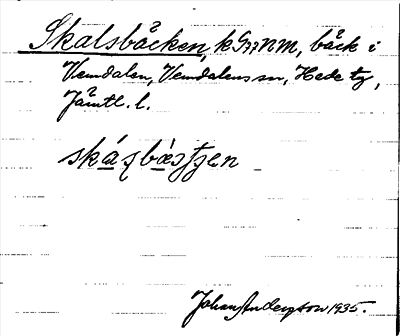 Skalsbäcken, kG77NM, bäck i
Vemdalen, Vemdalens sn, Hede tg,
Jämtl. l.
Johan Andersson 1935.